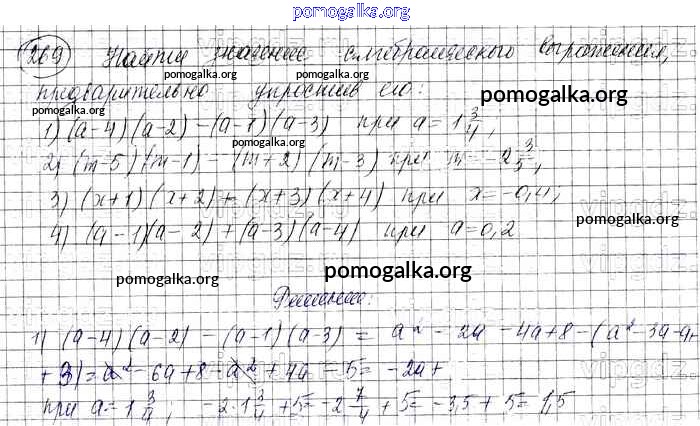 pomogalka.org
269 Найти значение алгебраического выражения,
pomogalka.org pomogalka.org
предварительно упростив его: pomogalka.org
1) (a-4)(a-2)-(a-1)(a-3) при a=1 3/4;
pomogalka.org pomogalka.org
2) (m-5)(m-1)-(m+2)(m-3) при m=-2 3/5;
3) (x+1)(x+2)+(x+3)(x+4) при x=-0,4;
pomogalka.org
4) (a-1)(a-2)+(a-3)(a-4) при a=0,2
pomogalka.org pomogalka.org
Решение:
1) (a-4)(a-2)-(a-1)(a-3)=a²-2a-4a+8-(a²-3a-a+
+3)=a²-6a+8-a²+4a-5=-2a+
при a=1 3/4; -2·1 3/4+5=-2 7/4+5=-3,5+5=1,5